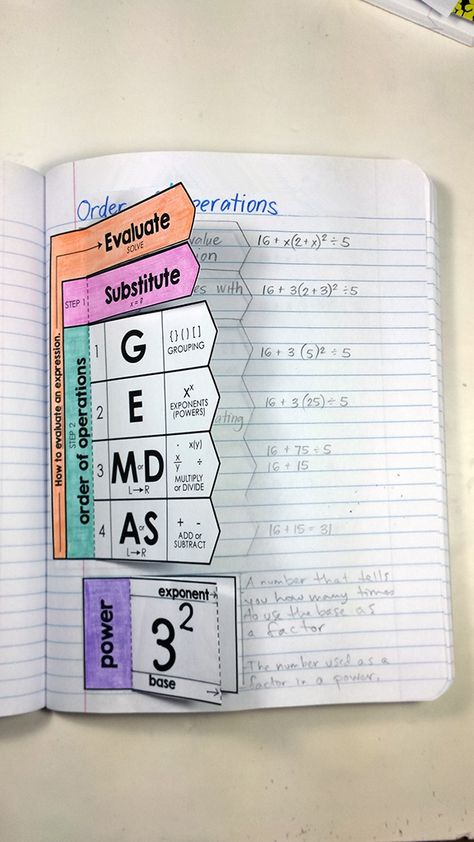 Order erations
Evaluate
SOLVE
value
ion
16 + x(2+x)² ÷ 5
STEP 1
Substitute
x = 3
es with
16 + 3(2+3)² ÷ 5
How to evaluate an expression.
STEP 2
order of operations
1
G
{ } ( ) [ ]
GROUPING
16 + 3 (5)² ÷ 5
2
E
xˣ
EXPONENTS
(POWERS)
16 + 3(25) ÷ 5
ating
3
M or D
L→R
· x(y)
x/y ÷
MULTIPLY
or DIVIDE
16 + 75 ÷ 5
16 + 15
4
A or S
L→R
+ -
ADD or
SUBTRACT
16 + 15 = 31
power
exponent→
3²
base
→
A number that tells
you how many times
to use the base as
a factor
The number used as a
factor in a power.